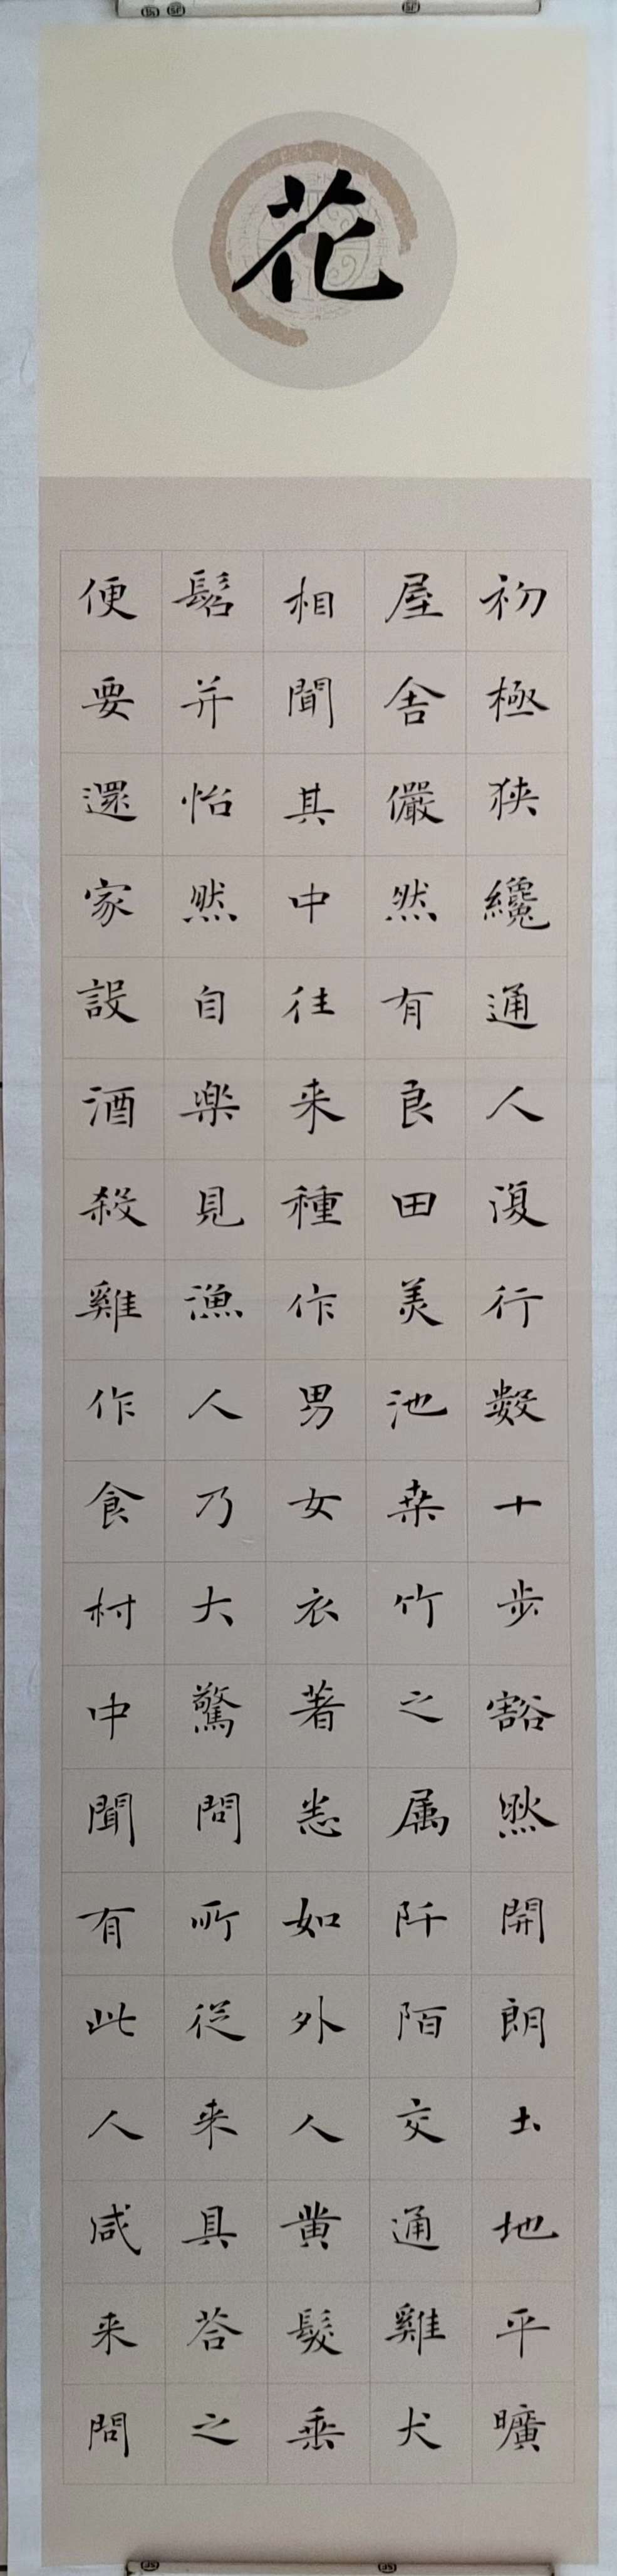 花
初極狹纔通人復行數十步豁然開朗土地平曠
屋舍儼然有良田美池桒竹之属阡陌交通雞犬
相聞其中往来種作男女衣著悉如外人黄髮垂
髫并怡然自樂見漁人乃大驚問所從来具荅之
便要還家設酒殺雞作食村中聞有此人咸来問